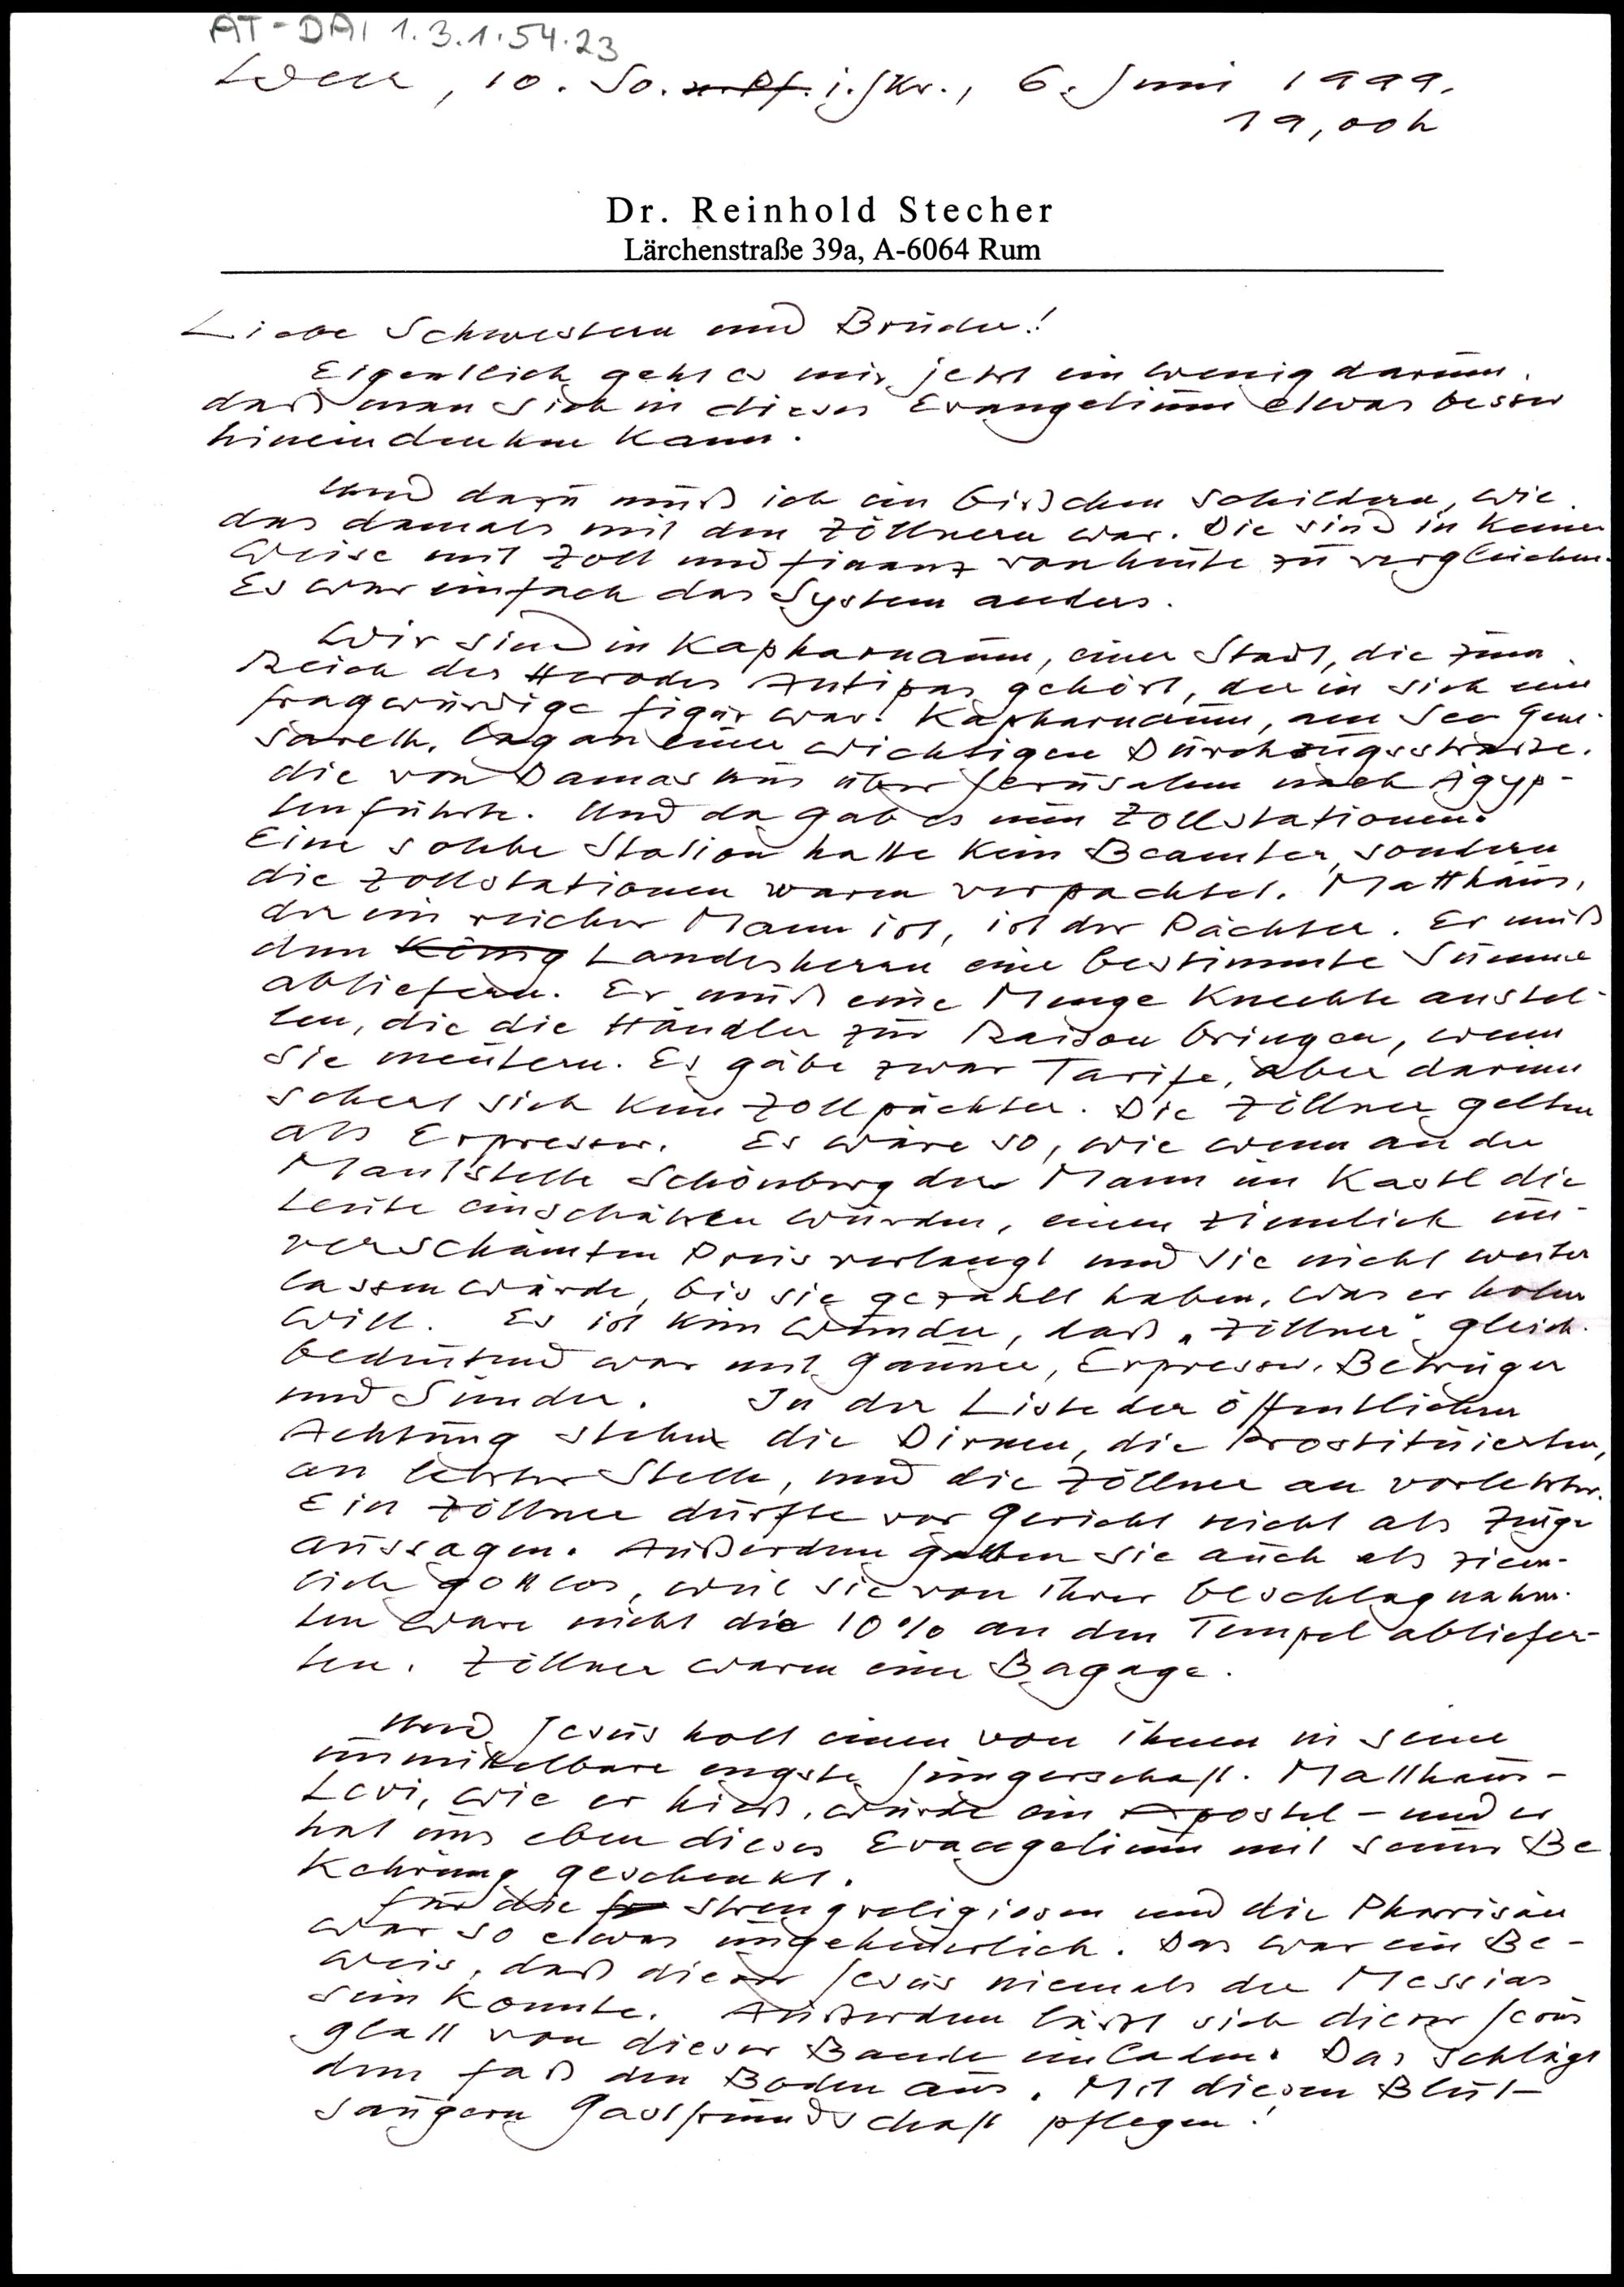 AT-DAI 1.3.1.54.23
Wen, 10. So. n. Pf. i. Jkr., 6. Juni 1999.
19,00h
Dr. Reinhold Stecher
Lärchenstraße 39a, A-6064 Rum
Liebe Schwestern und Brüder!
Eigentlich geht es mir jetzt ein wenig darum,
daß man sich in dieses Evangelium etwas besser
hineindenken kann.
Und dazu muß ich ein bißchen schildern, wie
das damals mit den Zöllnern war. Die sind in keiner
Weise mit Zoll und Finanz von heute zu vergleichen.
Es war einfach das System anders.
Wir sind in Kapharnaum, einer Stadt, die zum
Reich des Herodes Antipas gehört, der in sich eine
fragwürdige Figur war. Kapharnaum, am See Gene-
sareth, lag an einer wichtigen Durchzugsstrasse,
die von Damaskus über Jerusalem nach Ägyp-
ten führte. Und da gab es nun Zollstationen.
Eine solche Station hatte kein Beamter, sondern
die Zollstationen waren verpachtet. Matthäus,
der ein reicher Mann ist, ist der Pächter. Er muß
dem König Landesherrn eine bestimmte Summe
abliefern. Er muß eine Menge Knechte anstel-
len, die die Händler zur Raison bringen, wenn
sie meutern. Es gäbe zwar Tarife, aber darum
schert sich kein Zollpächter. Die Zöllner gelten
als Erpresser. Es wäre so, wie wenn an der
Mautstelle Schönberg der Mann im Kastl die
Leute einschätzen würden, einen ziemlich un-
verschämten Preis verlangt und sie nicht weiter
lassen würde, bis sie gezahlt haben, was er holen
will. Es ist kein Wunder, daß „Zöllner" gleich-
bedeutend war mit Gauner, Erpresser, Betrüger
und Sünder. In der Liste der öffentlichen
Achtung stehen die Dirnen, die Prostituierten,
an letzter Stelle, und die Zöllner an vorletzter.
Ein Zöllner durfte vor Gericht nicht als Zeuge
aussagen. Außerdem galten sie auch als ziem-
lich gottlos, weil sie von ihrer beschlagnahm-
ten Ware nicht die 10% an den Tempel abliefer-
ten. Zöllner waren eine Bagage.
Und Jesus holt einen von ihnen in seine
unmittelbare engste Jüngerschaft. Matthäus-
Levi, wie er hieß, wurde ein Apostel - und er
hat uns eben dieses Evangelium mit seiner Be
kehrung geschenkt.
Für die strengreligiosen und die Pharisäer
war so etwas ungeheuerlich. Das war ein Be-
weis, daß dieser Jesus niemals der Messias
sein konnte. Außerdem läßt sich dieser Jesus
glatt von dieser Bande einladen. Das schlägt
dem Faß den Boden aus. Mit diesen Blut-
saugern Gastfreundschaft pflegen!